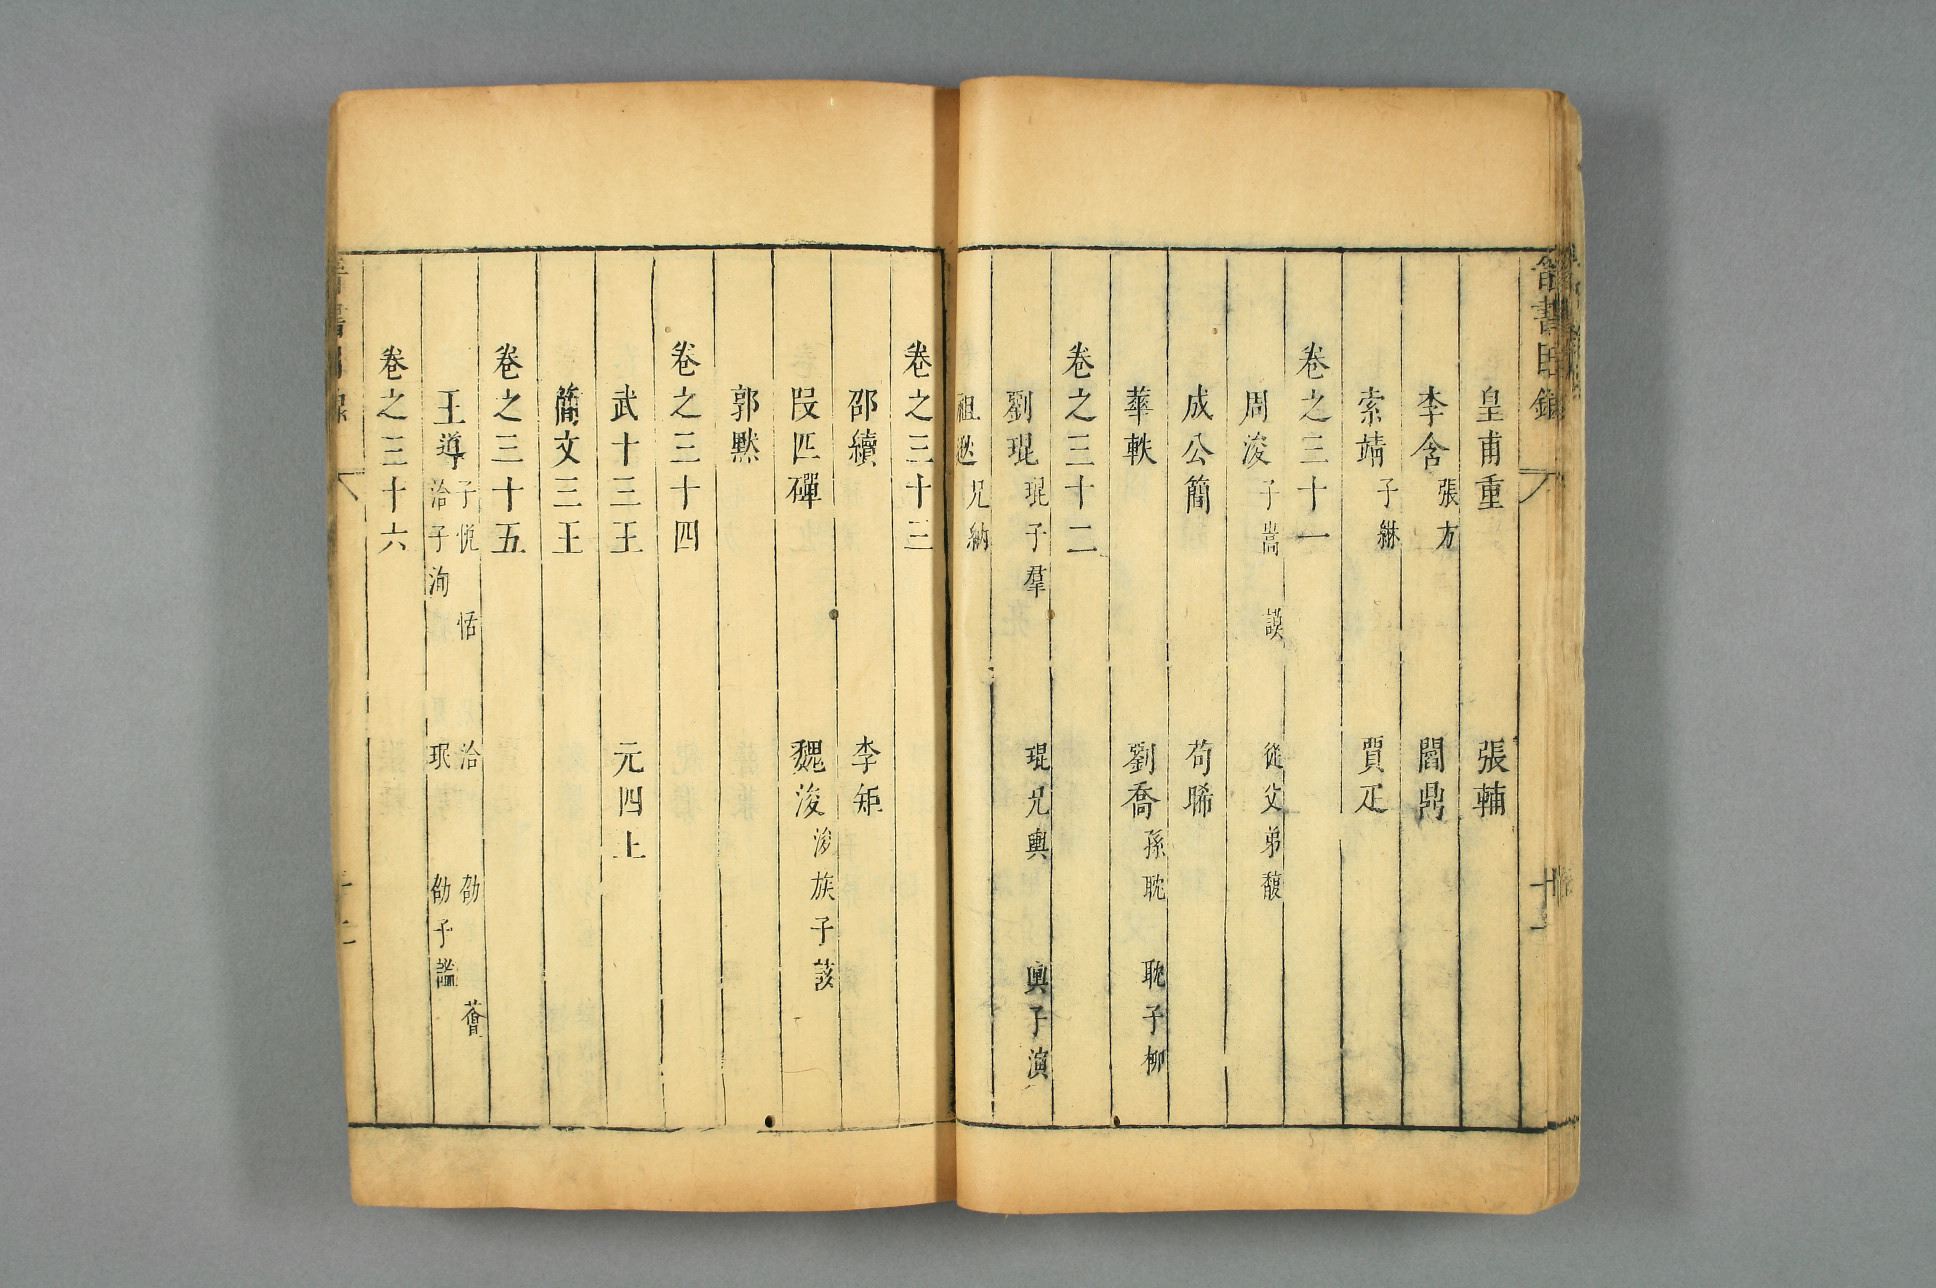 皇甫重 張輔
李含 張方 閻鼎
索靖 子綝 賈疋
卷之三十一
周浚 子嵩 謨 從父弟馥
成公簡 苟晞
華軼 劉喬 孫耽 耽子柳
卷之三十二
劉琨 琨子羣 琨兄輿 輿子演
祖逖 兄納
卷之三十三
邵續 李矩
段匹磾 魏浚 浚族子該
郭默
卷之三十四
武十三王 元四王
簡文三王
卷之三十五
王導 子悅 恬 洽 劭 薈
洽子洵 珉 劭子謐
卷之三十六